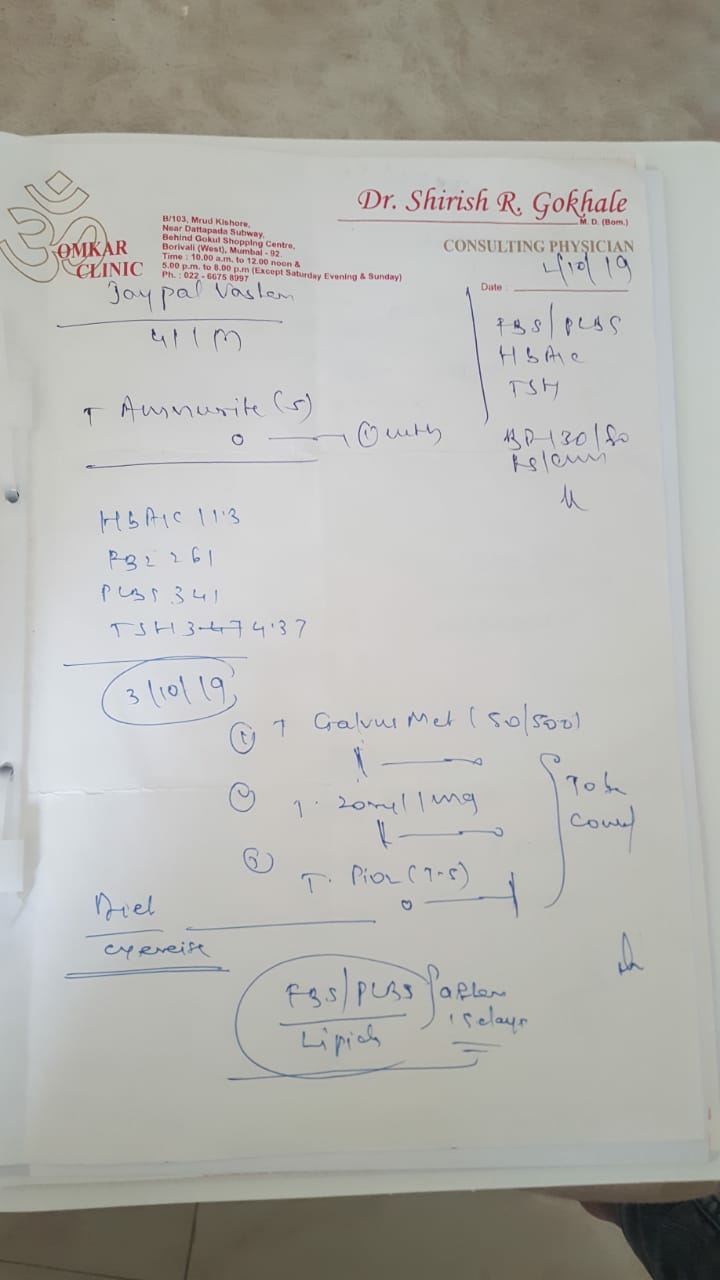 Dr. Shirish R. Gokhale
M. D. (Bom.)
CONSULTING PHYSICIAN
OMKAR
CLINIC
B/103, Mrud Kishore,
Near Dattapada Subway,
Behind Gokul Shopping Centre,
Borivali (West), Mumbai - 92.
Time : 10.00 a.m. to 12.00 noon &
5.00 p.m. to 8.00 p.m (Except Saturday Evening & Sunday)
Ph. : 022 - 6675 8997
Date : 4/10/19
Jaypal
41 / M
FBS/PLBS
HBA1c
TSH
BP-130/80
T (5)
0 1
HBA1C 11.3
261
PLBS 341
TSH 4.37
3/10/19
① T Galvus Met (50/500)
1 0
② T. 1mg
1 0
③ T. (7.5)
0 1
To be
Diet
exercise
FBS/PLBS
Lipid
after
15 days